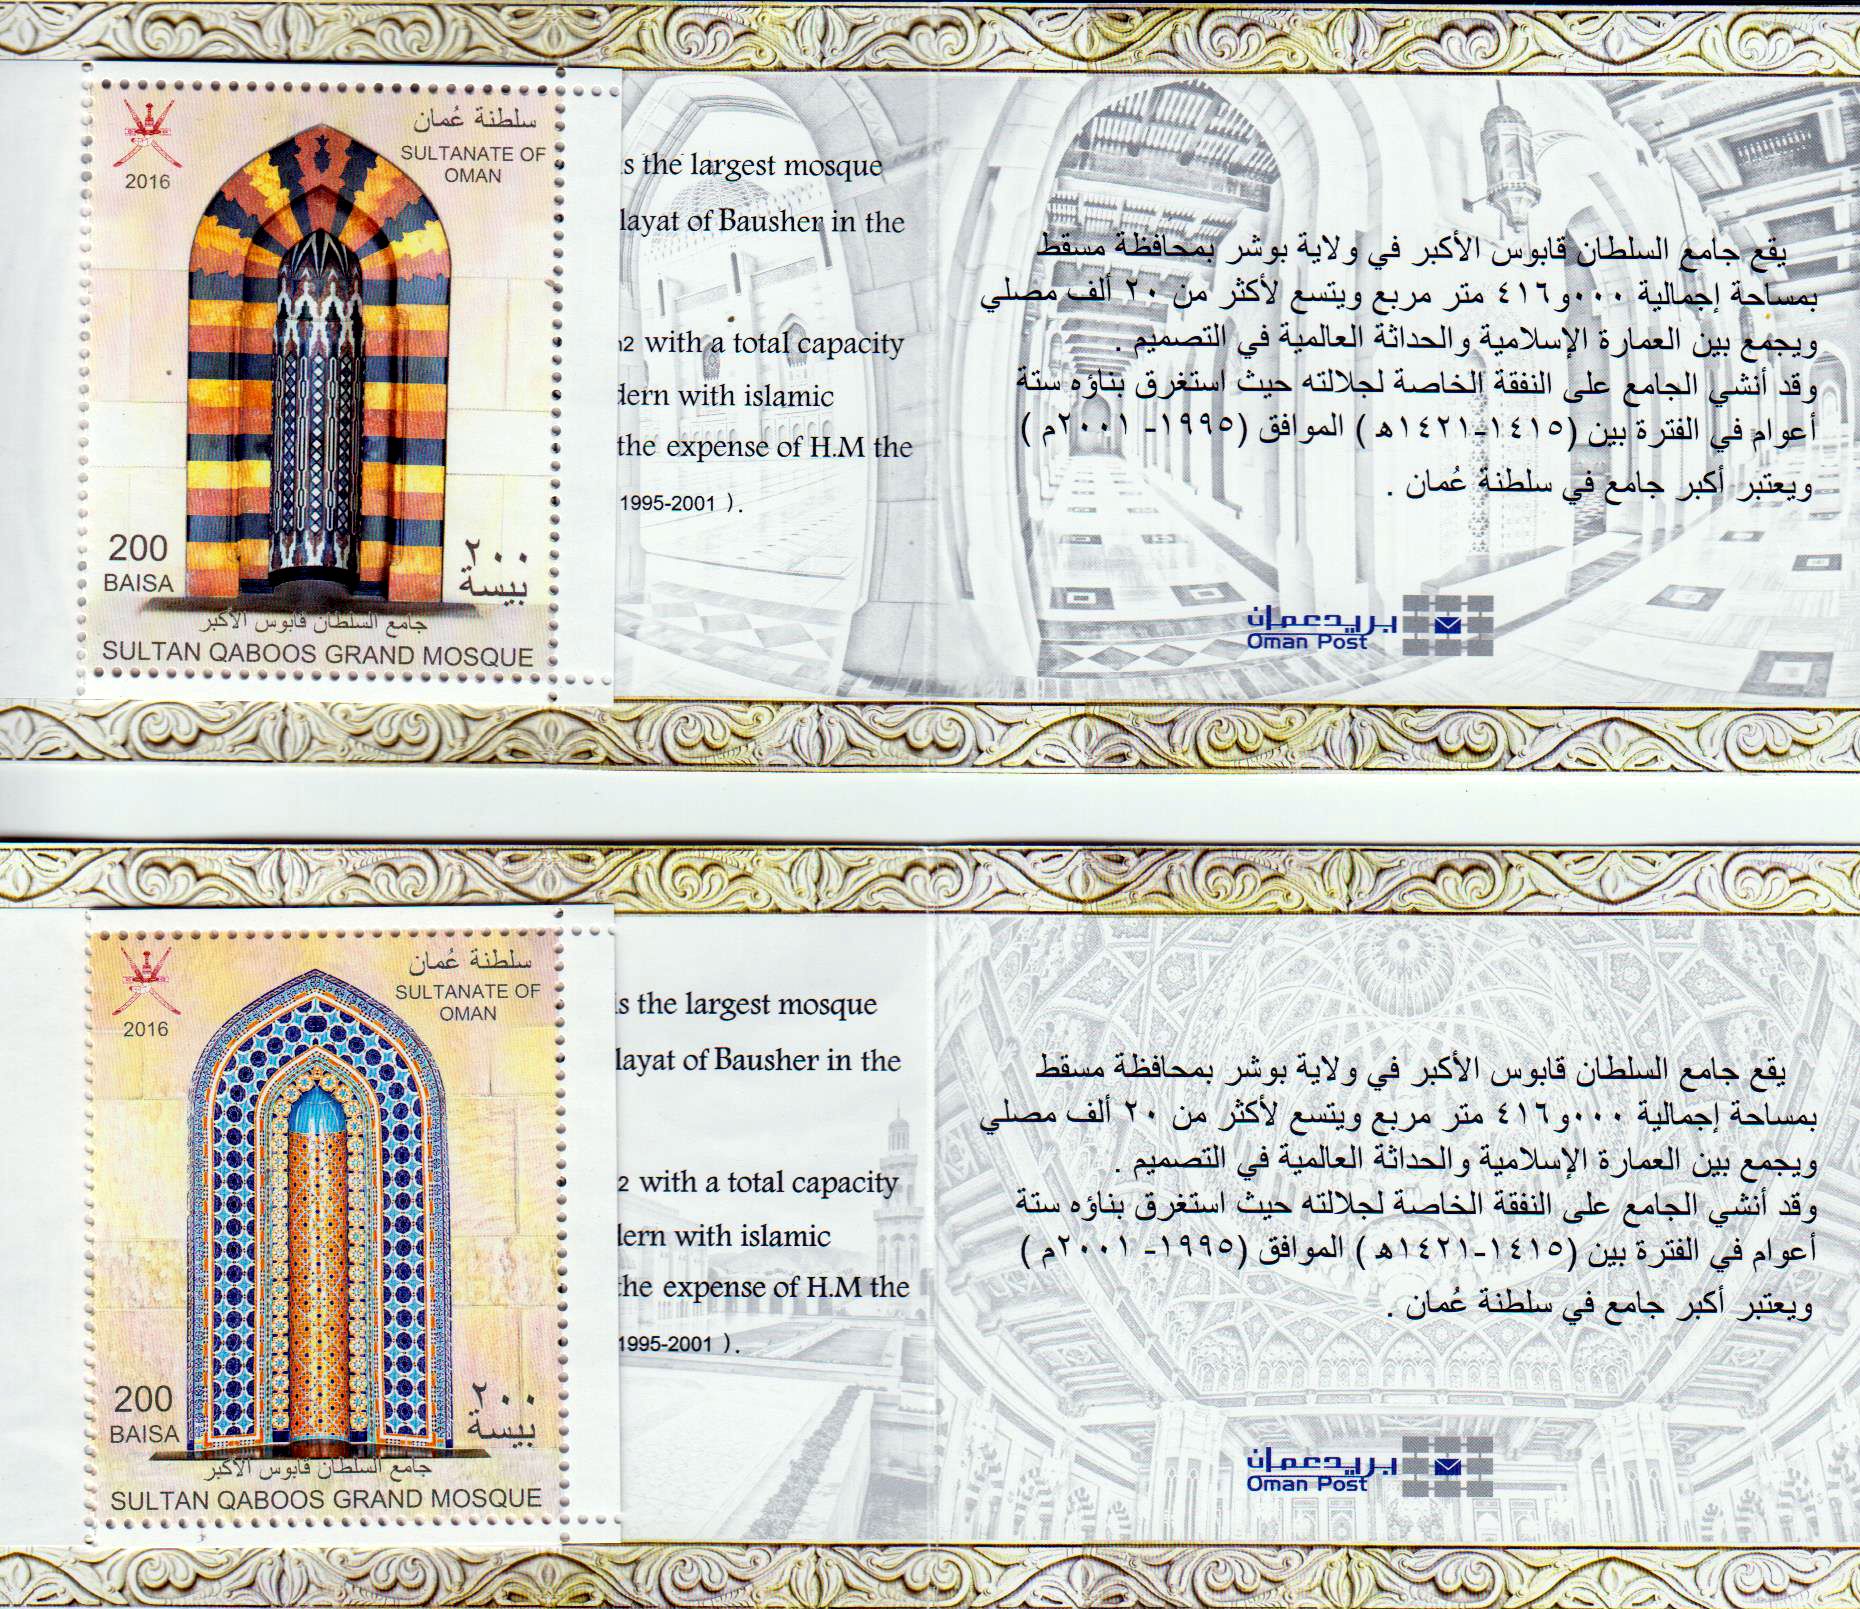 سلطنة عُمان
SULTANATE OF
OMAN
2016
200
BAISA
٢٠٠
بيسة
جامع السلطان قابوس الأكبر
SULTAN QABOOS GRAND MOSQUE
the largest mosque
of Bausher in the
with a total capacity
with islamic
the expense of H.M the
1995-2001 ).
يقع جامع السلطان قابوس الأكبر في ولاية بوشر بمحافظة مسقط
بمساحة إجمالية ٤١٦و٠٠٠ متر مربع ويتسع لأكثر من ٢٠ ألف مصلي
ويجمع بين العمارة الإسلامية والحداثة العالمية في التصميم .
وقد أنشي الجامع على النفقة الخاصة لجلالته حيث استغرق بناؤه ستة
أعوام في الفترة بين (١٤١٥-١٤٢١هـ ) الموافق (١٩٩٥- ٢٠٠١م )
ويعتبر أكبر جامع في سلطنة عُمان .
بريد عمان
Oman Post
سلطنة عُمان
SULTANATE OF
OMAN
2016
200
BAISA
٢٠٠
بيسة
جامع السلطان قابوس الأكبر
SULTAN QABOOS GRAND MOSQUE
the largest mosque
of Bausher in the
with a total capacity
with islamic
the expense of H.M the
1995-2001 ).
يقع جامع السلطان قابوس الأكبر في ولاية بوشر بمحافظة مسقط
بمساحة إجمالية ٤١٦و٠٠٠ متر مربع ويتسع لأكثر من ٢٠ ألف مصلي
ويجمع بين العمارة الإسلامية والحداثة العالمية في التصميم .
وقد أنشي الجامع على النفقة الخاصة لجلالته حيث استغرق بناؤه ستة
أعوام في الفترة بين (١٤١٥-١٤٢١هـ ) الموافق (١٩٩٥- ٢٠٠١م )
ويعتبر أكبر جامع في سلطنة عُمان .
بريد عمان
Oman Post